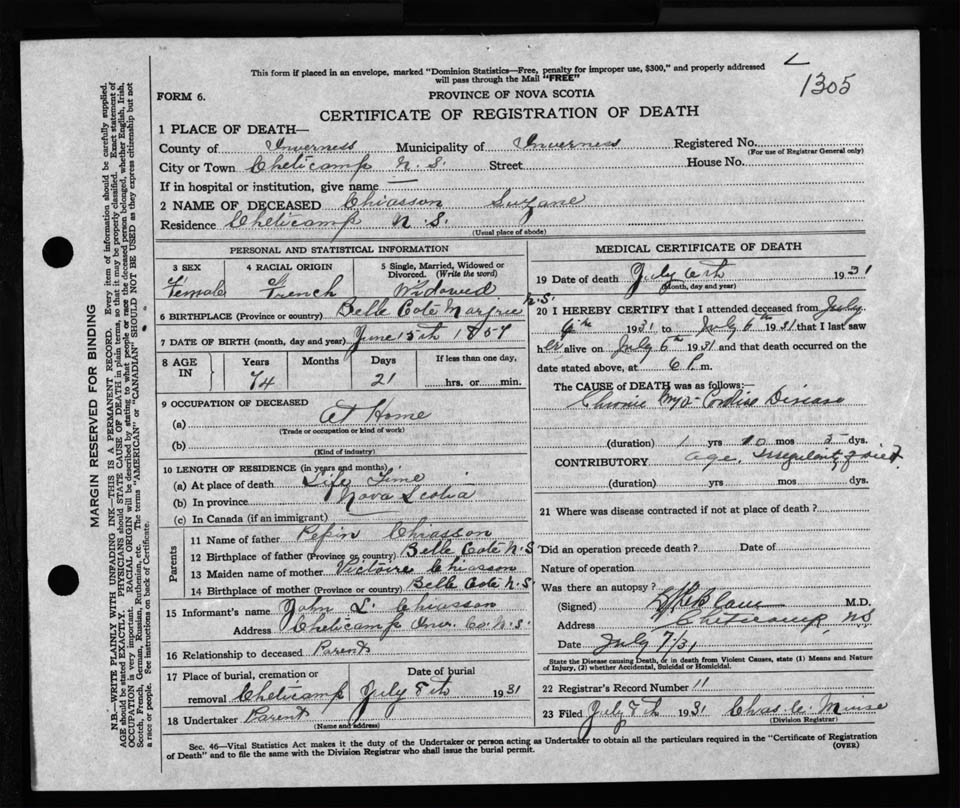 1305
This form if placed in an envelope, marked "Dominion Statistics—Free, penalty for improper use, $300," and properly addressed
will pass through the Mail "FREE"
FORM 6.
PROVINCE OF NOVA SCOTIA
CERTIFICATE OF REGISTRATION OF DEATH
1 PLACE OF DEATH—
County of Inverness Municipality of Inverness Registered No.
(For use of Registrar General only)
City or Town Cheticamp N.S. Street House No.
If in hospital or institution, give name —
2 NAME OF DECEASED Chiasson Suzane
Residence Cheticamp N.S.
(Usual place of abode)
PERSONAL AND STATISTICAL INFORMATION
3 SEX
Female
4 RACIAL ORIGIN
French
5 Single, Married, Widowed or
Divorced. (Write the word)
Widowed
6 BIRTHPLACE (Province or country) Belle Cote N.S.
7 DATE OF BIRTH (month, day and year) June 15th 1857
8 AGE IN
Years Months Days If less than one day,
74 21 hrs. or min.
9 OCCUPATION OF DECEASED
(a) At Home
(Trade or occupation or kind of work)
(b)
(Kind of industry)
10 LENGTH OF RESIDENCE (in years and months)
(a) At place of death Life Time
(b) In province Nova Scotia
(c) In Canada (if an immigrant)
Parents
11 Name of father Pepin Chiasson
12 Birthplace of father (Province or country) Belle Cote N.S
13 Maiden name of mother Victoire Chiasson
14 Birthplace of mother (Province or country) Belle Cote N.S.
15 Informant's name John L. Chiasson
Address Cheticamp Inv. Co. N.S.
16 Relationship to deceased Parent
17 Place of burial, cremation or Date of burial
removal Cheticamp July 8th 1931
18 Undertaker Parent
(Name and address)
MEDICAL CERTIFICATE OF DEATH
19 Date of death July 6th 1931
(Month, day and year)
20 I HEREBY CERTIFY that I attended deceased from July
6th 1931 to July 6th 1931 that I last saw
her alive on July 6th 1931 and that death occurred on the
date stated above, at 6 P. m.
The CAUSE of DEATH was as follows:
Chronic Myo- Disease
(duration) 1 yrs 10 mos dys.
CONTRIBUTORY age,
(duration) yrs mos dys.
21 Where was disease contracted if not at place of death?
Did an operation precede death? Date of
Nature of operation
Was there an autopsy?
(Signed) M.D.
Address Cheticamp, NS
Date July 7/31
State the Disease causing Death, or in death from Violent Causes, state (1) Means and Nature
of Injury, (2) whether Accidental, Suicidal or Homicidal.
22 Registrar's Record Number 11
23 Filed July 8th 1931 Chas.
(Division Registrar)
Sec. 46—Vital Statistics Act makes it the duty of the Undertaker or person acting as Undertaker to obtain all the particulars required in the "Certificate of Registration
of Death" and to file the same with the Division Registrar who shall issue the burial permit.
(OVER)
MARGIN RESERVED FOR BINDING
N.B.—WRITE PLAINLY WITH UNFADING INK—THIS IS A PERMANENT RECORD. Every item of information should be carefully supplied.
AGE should be stated EXACTLY. PHYSICIANS should STATE CAUSE OF DEATH in plain terms, so that it may be properly classified. Exact statement of
OCCUPATION is very important. RACIAL ORIGIN will be described by stating to what people or race the deceased person belonged, whether English, Irish,
Scotch, French, German, Russian, Ruthenian, etc. The terms "AMERICAN" or "CANADIAN" SHOULD NOT BE USED as they express citizenship but not
a race or people. See instructions on back of Certificate.